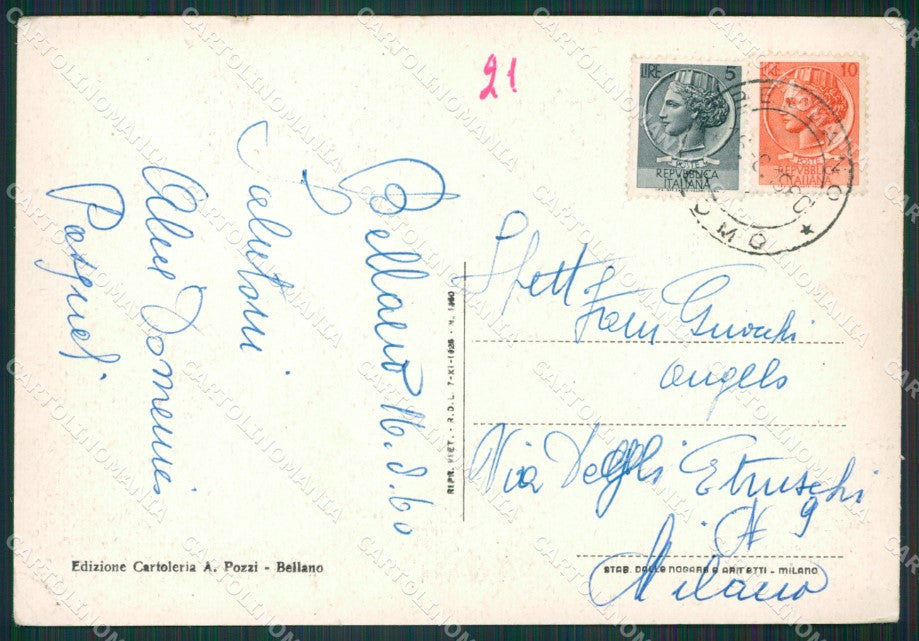 21
LIRE 5
POSTE
REPVBBLICA
ITALIANA
LIRE 10
POSTE
REPVBBLICA
ITALIANA
BELLANO
COMO
Bellano 16.8.60
Saluti
Pasquel
Spett
Fam
Angelo
Via Degli Etruschi
N 9
Milano
RIPR. VIET. - R.D.L. 7-XI-1925 - N. 1950
Edizione Cartoleria A. Pozzi - Bellano
STAB. DALLE NOGARE E ARMETTI - MILANO
CARTOLINOMANIA